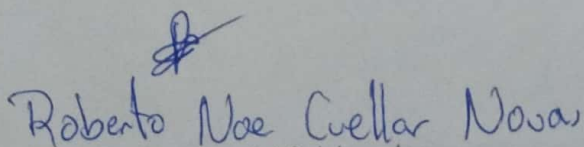 Roberto Noe Cuellar Novas